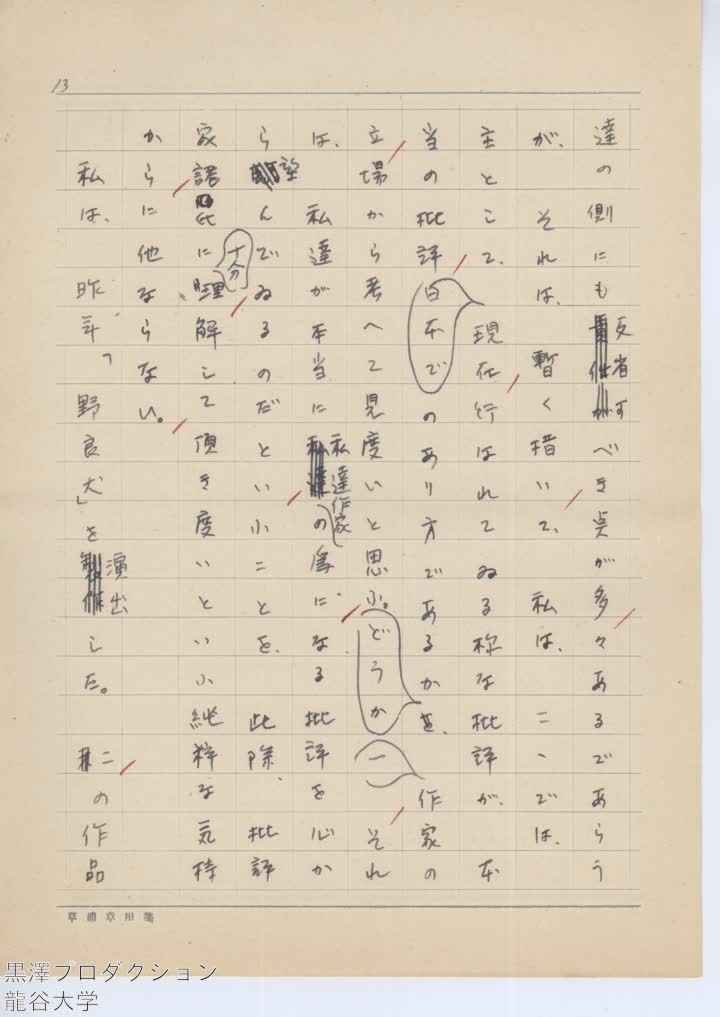 13
達の側にも反省すべき点が多々あるであらう
が、それは、暫く措いて、私は、こゝでは、
主として、現在行はれてゐる様な批評が、本
当の批評日本でのあり方であるかを、作家の
立場から考へて見度いと思ふ。どうか一それ
は、私達が本当に私達作家の為になる批評を心か
ら望んでゐるのだといふことを、此際、批評
家諸氏に十分理解して頂き度いといふ純粋な気持
からに他ならない。
私は、昨年、「野良犬」を演出した。この作品
黒澤プロダクション
龍谷大学